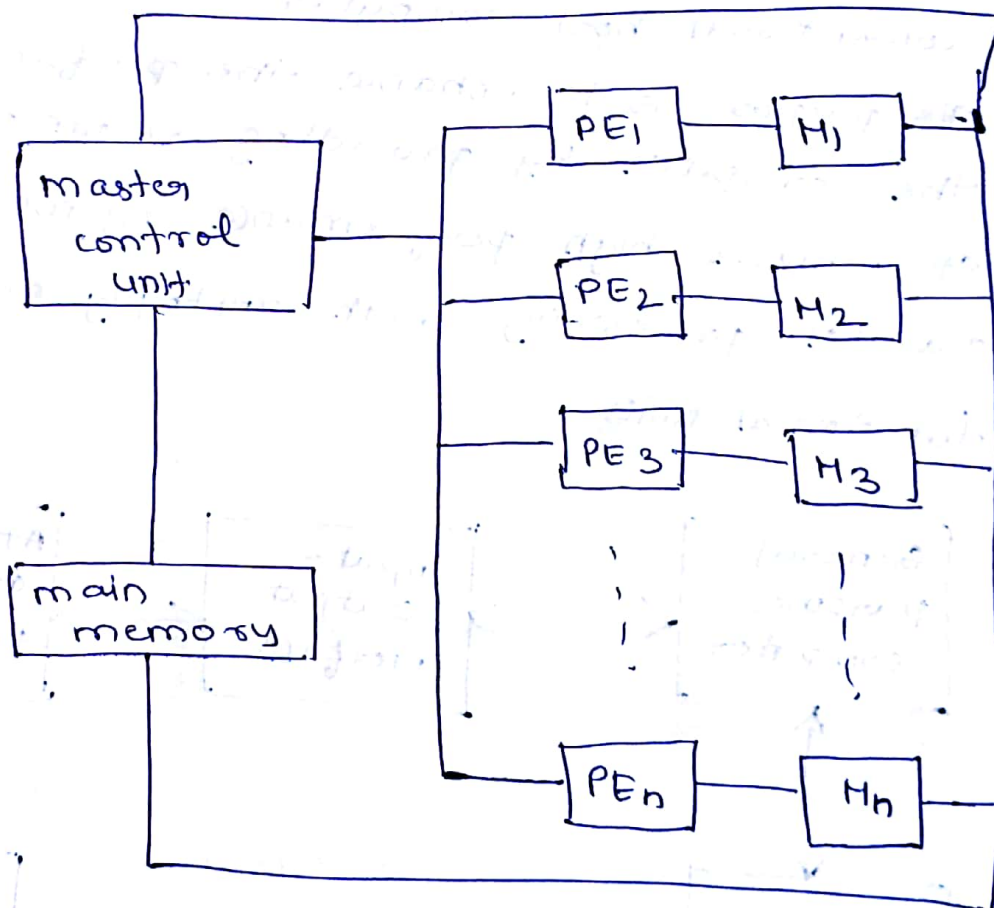 master
control
unit
main
memory
PE1
M1
PE2
M2
PE3
M3
PEn
Mn